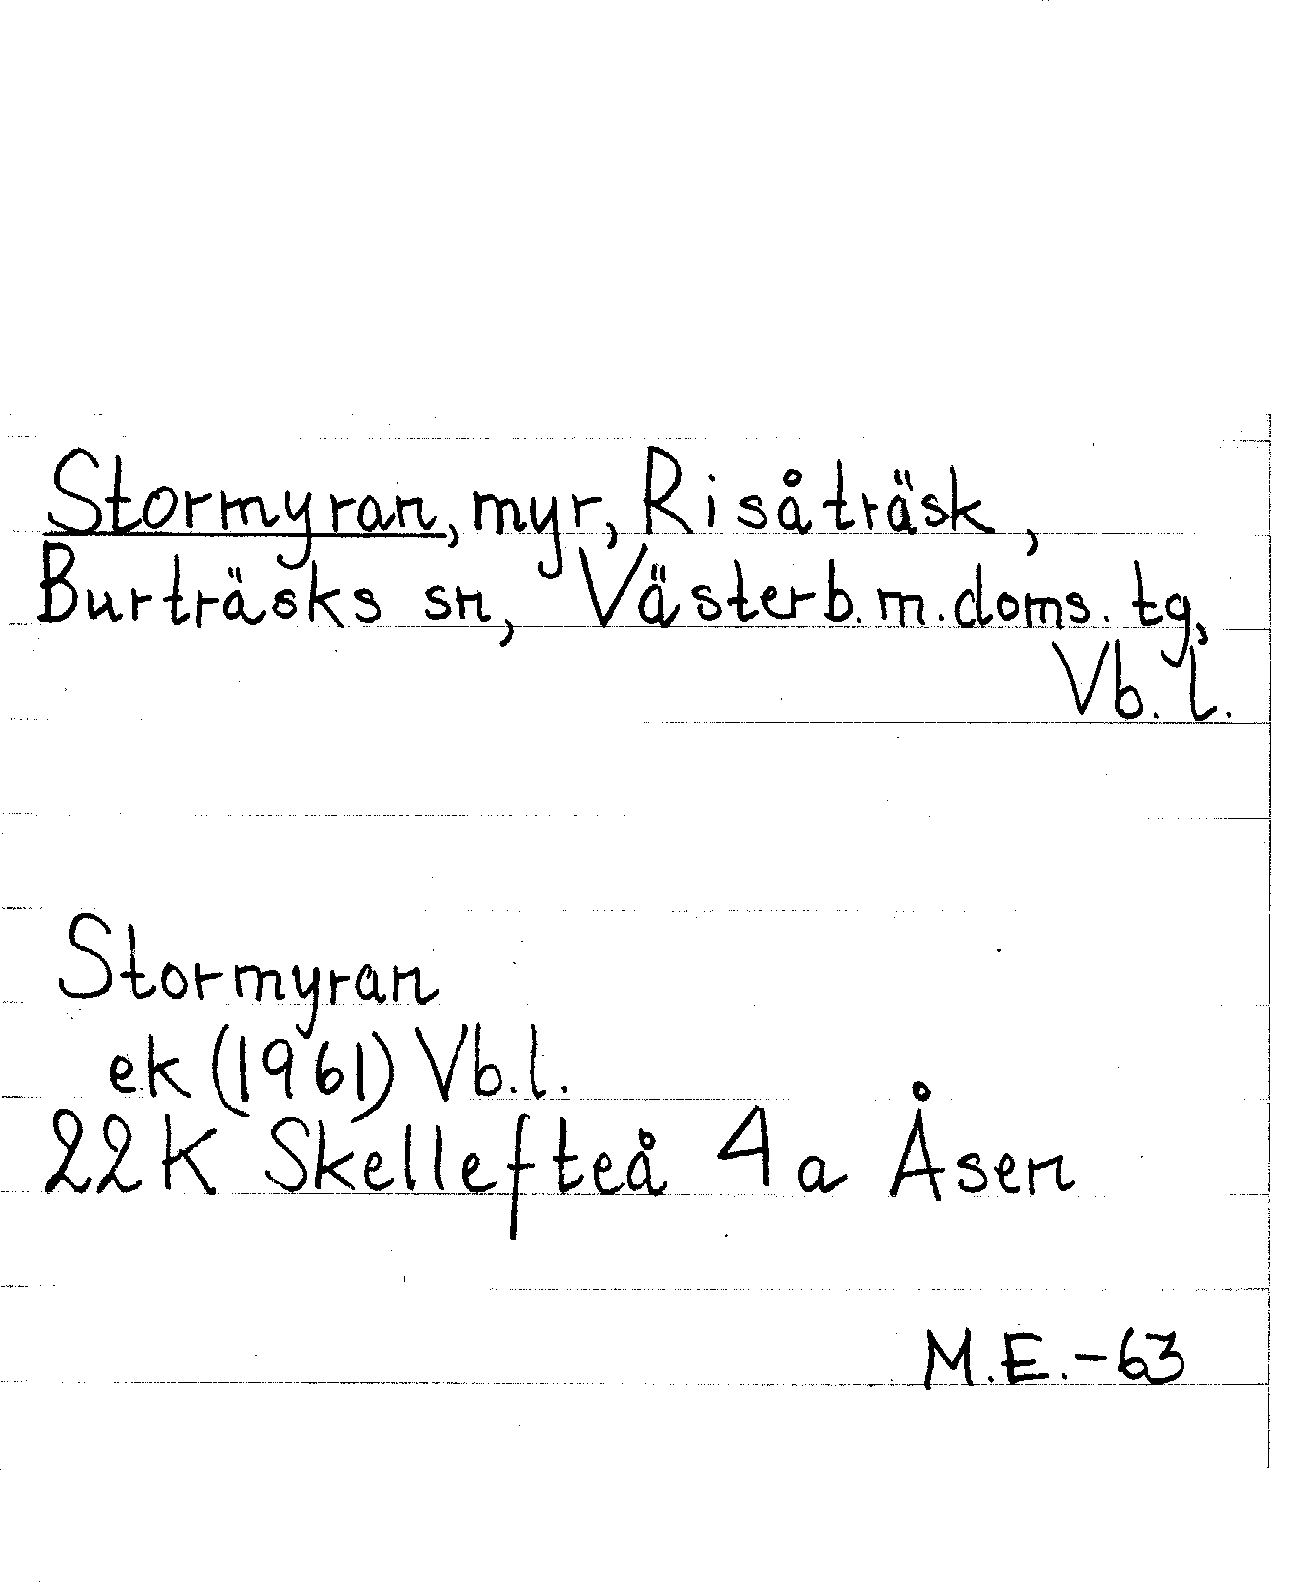 Stormyran, myr, Risåträsk,
Burträsks sn, Västerb.m.doms. tg,
Vb. l.
Stormyran
ek (1961) Vb.l.
22K Skellefteå 4a Åsen
M.E.-63